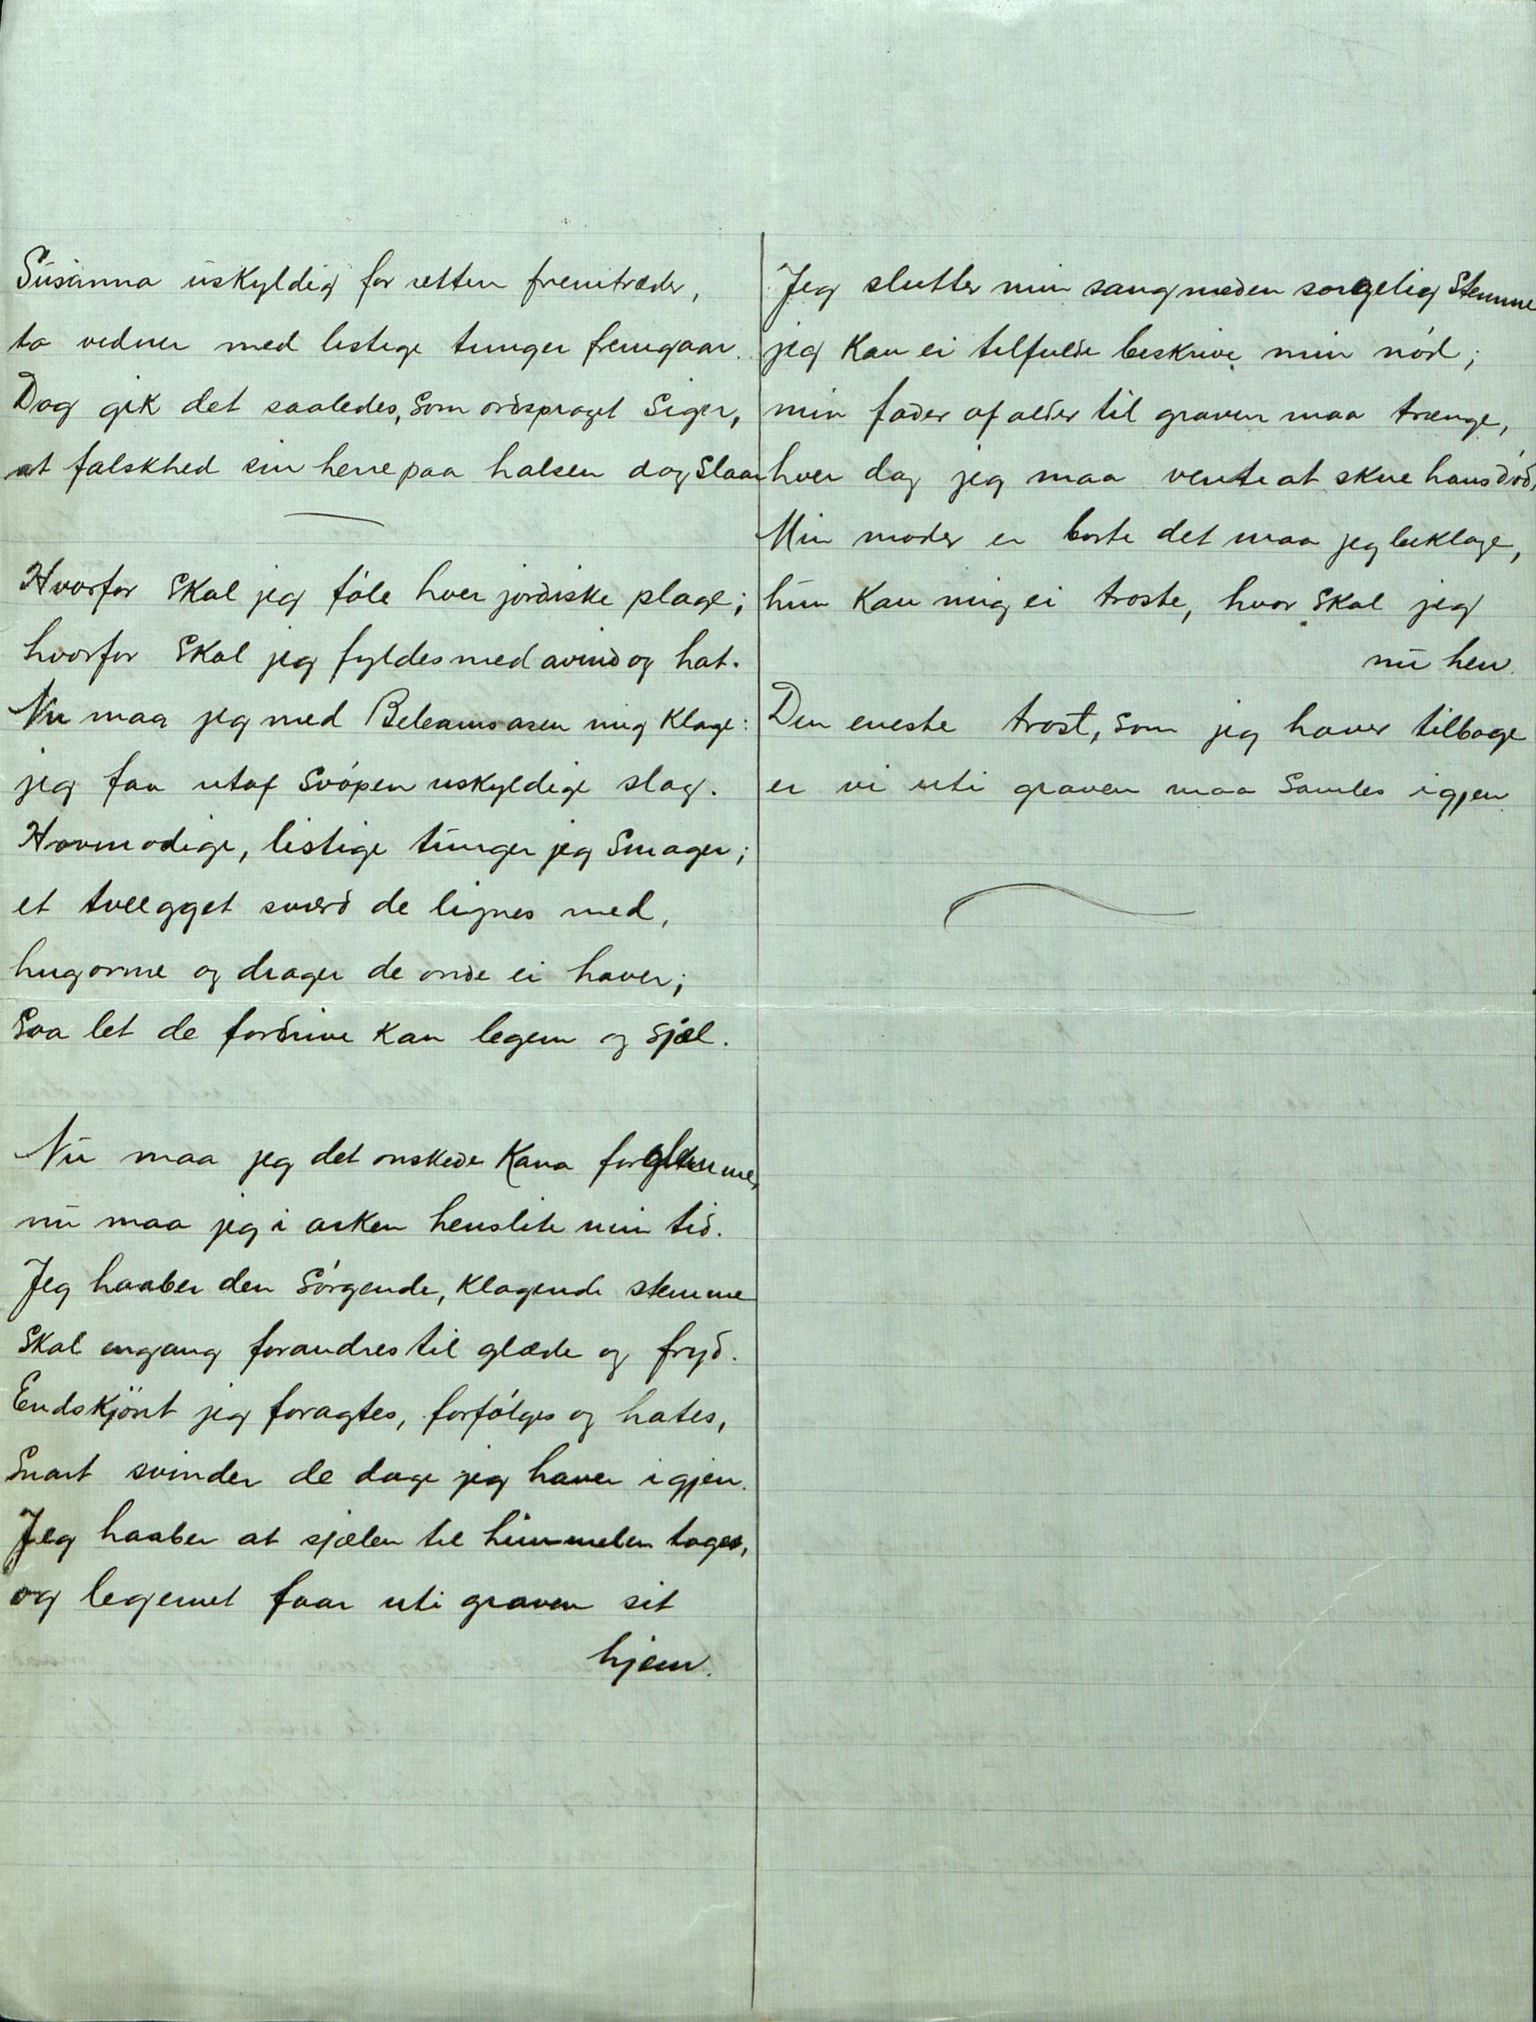 Susanna uskyldig for retten fremtræder,
to vidner med listige tunger fremgaar.
Dog gik det saaledes, som ordsproget siger,
at falskhed sin herre paa halsen dog slaar
Hvorfor skal jeg føle hver jordiske plage;
hvorfor skal jeg fyldes med avind og hat.
Nu maa jeg med Beleams asen mig klage:
jeg faa utaf svøpen uskyldige slag.
Hovmodige, listige tunger jeg smager;
et tveegget sværd de lignes med,
hugorme og drager de onde ei haver;
Saa let de fordrive kan legem og sjæl.
Nu maa jeg det onskede Kana forglemme,
nu maa jeg i arken henslite min tid.
Jeg haaber den sørgende, klagende stemme
skal engang forandres til glæde og fryd.
Endskjönt jeg foragtes, forfølges og hates,
Snart svinder de dage jeg haver igjen.
Jeg haaber at sjælen til himmelen tages,
og legemet faar uti graven sit
hjem.
Jeg slutter min sang med en sorgelig stemme
jeg kan ei tilfulde beskrive min nød;
min fader af alder til graven maa trænge,
hver dag jeg maa vente at skue hans død,
Min moder er borte det maa jeg beklage,
hun kan mig ei troste, hvor skal jeg
nu hen.
Den eneste trost, som jeg haver tilbage
er vi uti graven maa samles igjen.